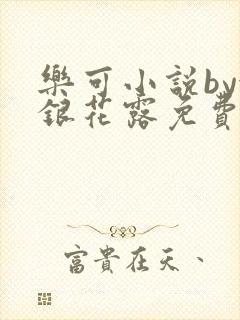 樂可小説by
銀花露免費
富貴在天、